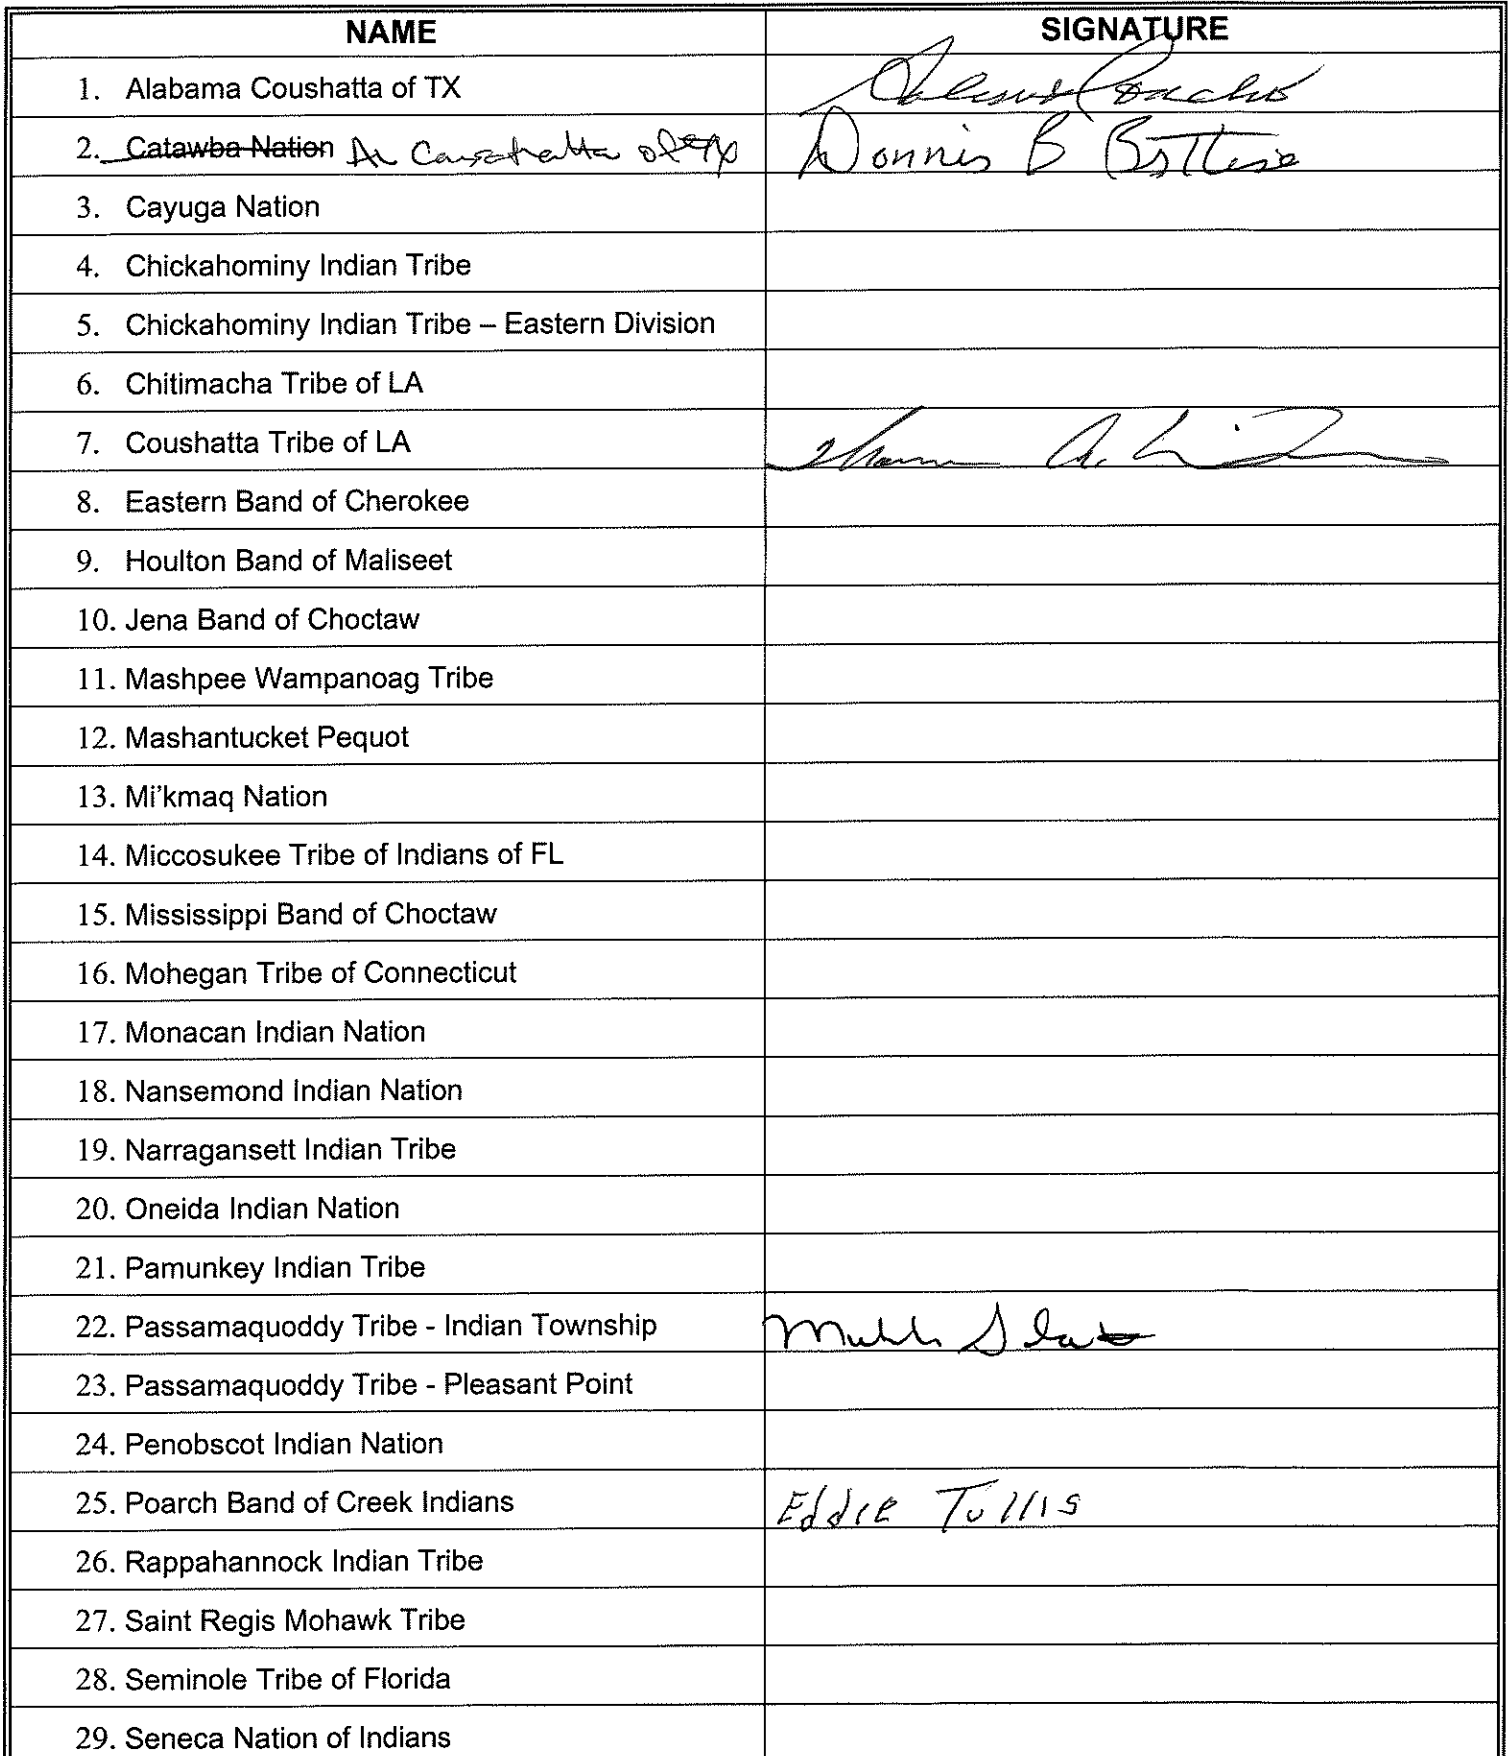 NAME SIGNATURE
1. Alabama Coushatta of TX
2. Catawba Nation AL Coushatta of TX Donnis B Battise
3. Cayuga Nation
4. Chickahominy Indian Tribe
5. Chickahominy Indian Tribe – Eastern Division
6. Chitimacha Tribe of LA
7. Coushatta Tribe of LA
8. Eastern Band of Cherokee
9. Houlton Band of Maliseet
10. Jena Band of Choctaw
11. Mashpee Wampanoag Tribe
12. Mashantucket Pequot
13. Mi'kmaq Nation
14. Miccosukee Tribe of Indians of FL
15. Mississippi Band of Choctaw
16. Mohegan Tribe of Connecticut
17. Monacan Indian Nation
18. Nansemond Indian Nation
19. Narragansett Indian Tribe
20. Oneida Indian Nation
21. Pamunkey Indian Tribe
22. Passamaquoddy Tribe - Indian Township
23. Passamaquoddy Tribe - Pleasant Point
24. Penobscot Indian Nation
25. Poarch Band of Creek Indians Eddie Tullis
26. Rappahannock Indian Tribe
27. Saint Regis Mohawk Tribe
28. Seminole Tribe of Florida
29. Seneca Nation of Indians